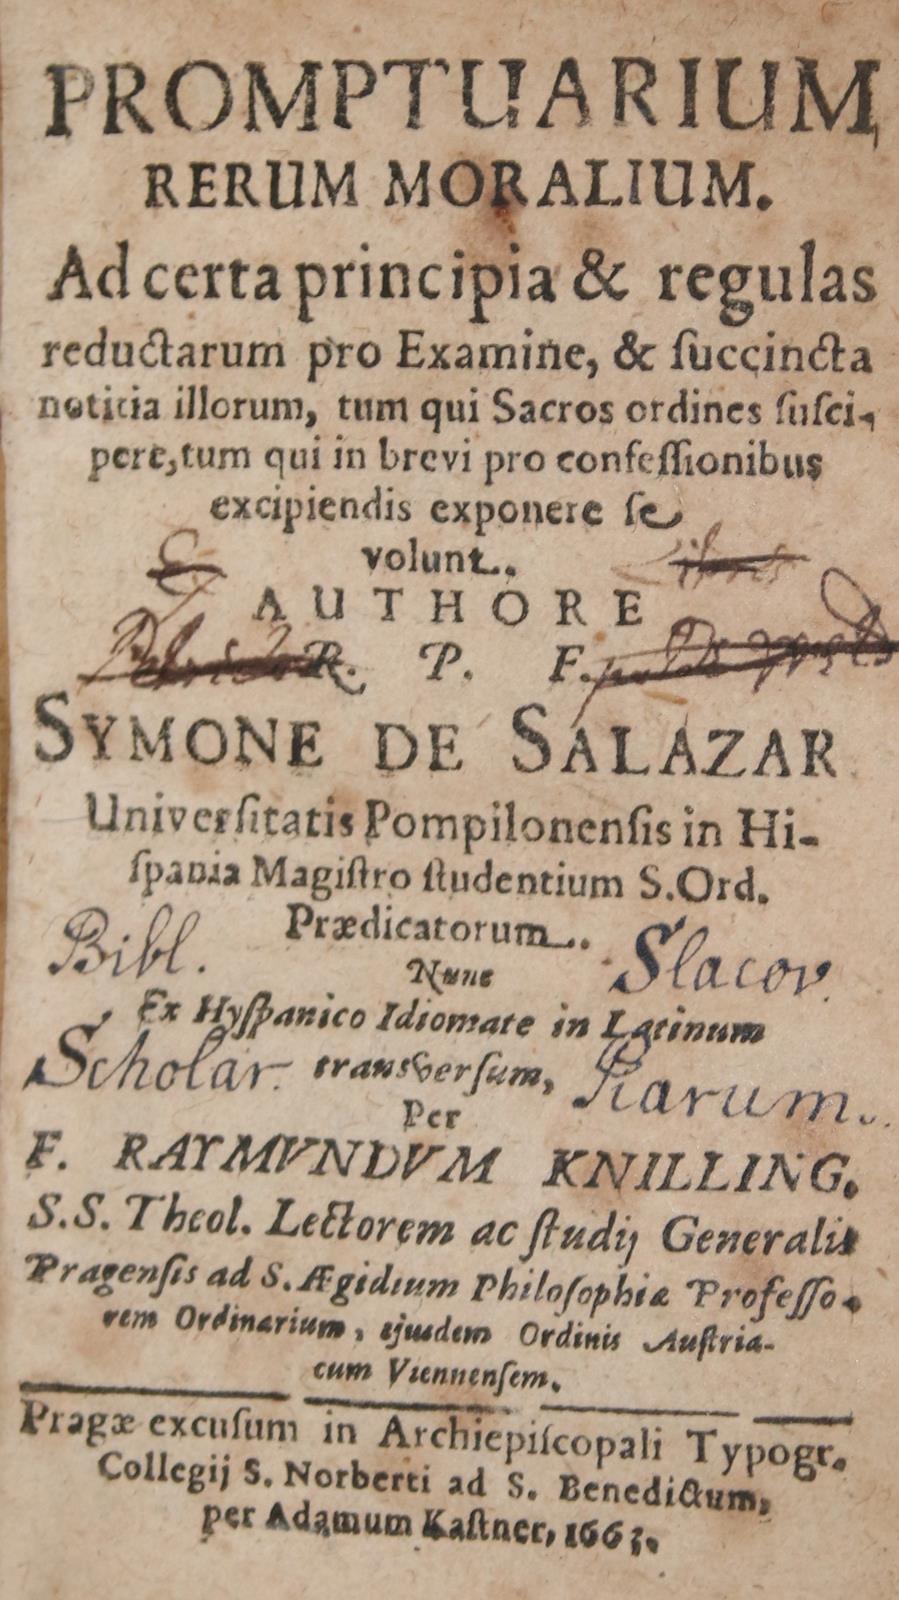 PROMPTUARIUM,
RERUM MORALIUM.
Ad certa principia & regulas
reductarum pro Examine, & ſuccincta
notitia illorum, tum qui Sacros ordines ſuſci-
pere, tum qui in brevi pro confeſſionibus
excipiendis exponere ſe
volunt.
AUTHORE
R. P. F.
SYMONE DE SALAZAR
Univerſitatis Pompilonenſis in Hi-
ſpania Magiſtro ſtudentium S. Ord.
Prædicatorum.
Bibl. Slacov.
Nunc
Ex Hyſpanico Idiomate in Latinum
Scholar. Piarum.
transverſum,
Per
F. RAYMVNDVM KNILLING.
S.S. Theol. Lectorem ac ſtudij Generalis
Pragenſis ad S. Ægidium Philoſophiæ Profeſſo-
rem Ordinarium, ejusdem Ordinis Auſtria-
cum Viennenſem.
Pragæ excuſum in Archiepiſcopali Typogr.
Collegij S. Norberti ad S. Benedictum,
per Adamum Kaſtner, 1663.